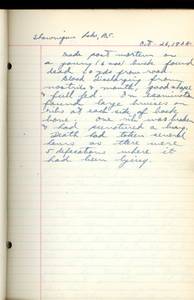 Shawnigan Lake, B.C.
Oct. 26, 1928.
Made post mortem on
a young (6 mos) buck found
dead 10 yds from road.
Blood discharging from
nostrils & mouth, good shape
& full fed. I'm examination
found large bruises on
ribs at each side of back
bone. One rib was broken
& had punctured a lung.
Death had taken several
hours as there were
5 defecations where it
had been lying.